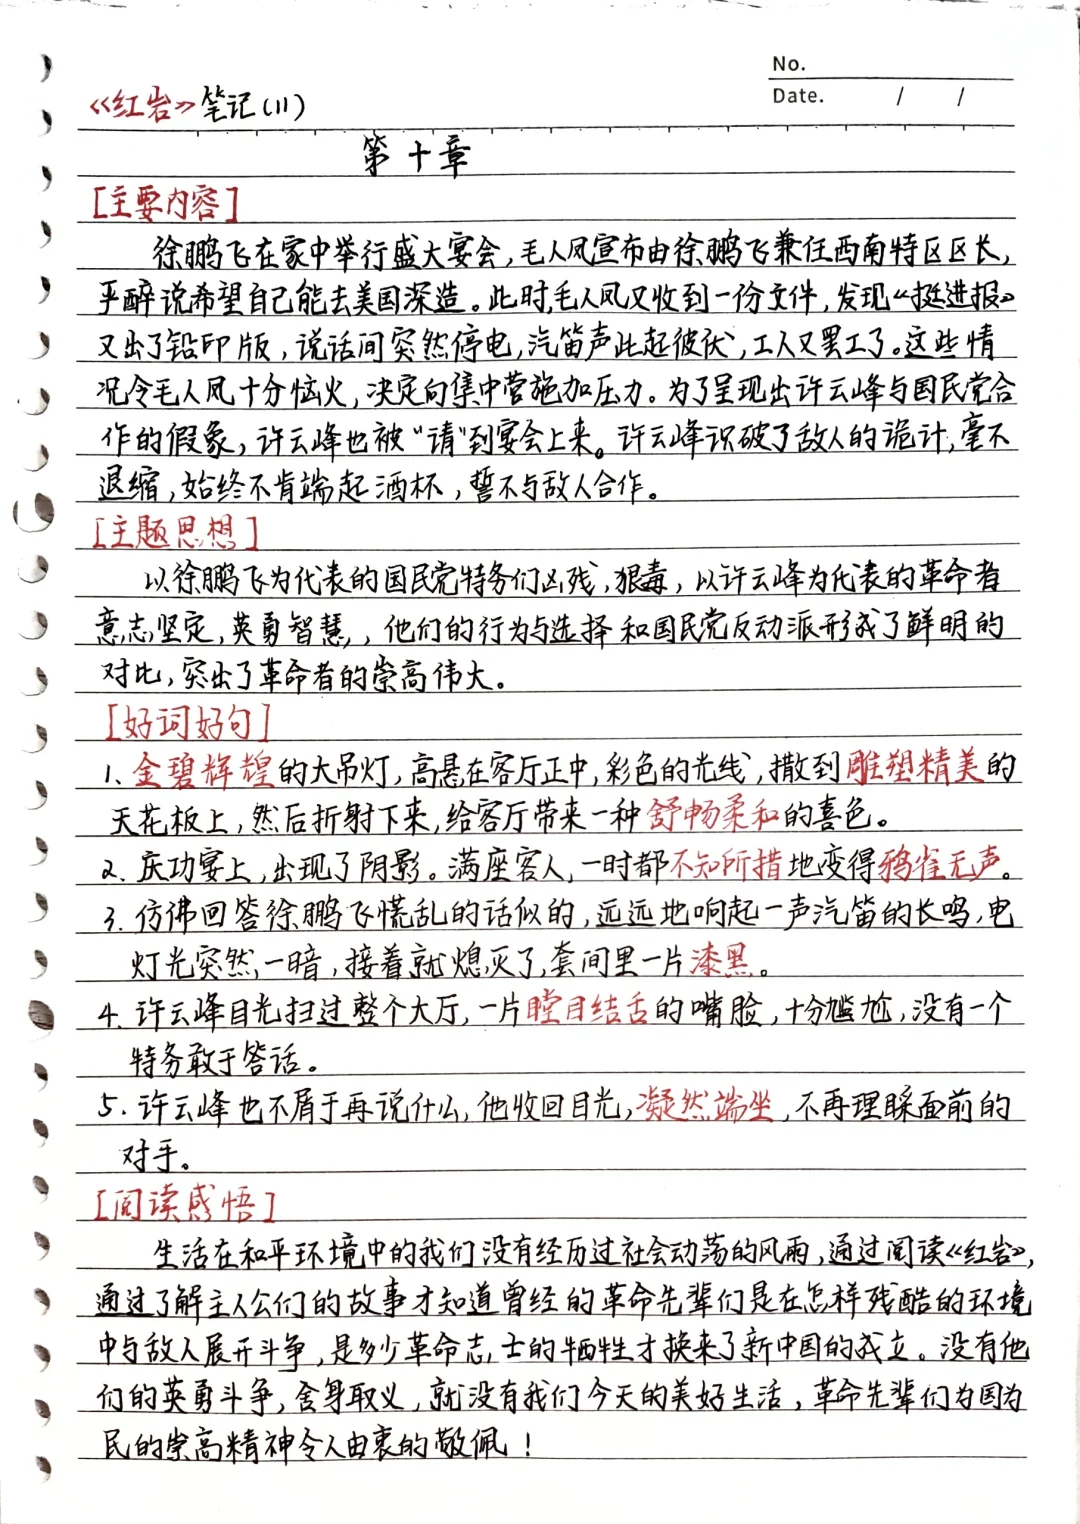 No.
Date. / /
《红岩》笔记(11)
第十章
[主要内容]
徐鹏飞在家中举行盛大宴会,毛人凤宣布由徐鹏飞兼任西南特区区长,
严醉说希望自己能去美国深造。此时,毛人凤又收到一份文件,发现《挺进报》
又出了铅印版,说话间突然停电,汽笛声此起彼伏,工人又罢工了。这些情
况令毛人凤十分恼火,决定向集中营施加压力。为了呈现出许云峰与国民党合
作的假象,许云峰也被“请”到宴会上来。许云峰识破了敌人的诡计,毫不
退缩,始终不肯端起酒杯,誓不与敌人合作。
[主题思想]
以徐鹏飞为代表的国民党特务们凶残,狠毒,以许云峰为代表的革命者
意志坚定,英勇智慧,,他们的行为与选择和国民党反动派形成了鲜明的
对比,突出了革命者的崇高伟大。
[好词好句]
1、金碧辉煌的大吊灯,高悬在客厅正中,彩色的光线,撒到雕塑精美的
天花板上,然后折射下来,给客厅带来一种舒畅柔和的喜色。
2、庆功宴上,出现了阴影。满座客人,一时都不知所措地变得鸦雀无声。
3.仿佛回答徐鹏飞慌乱的话似的,远远地响起一声汽笛的长鸣,电
灯光突然,一暗,接着就熄灭了,套间里一片漆黑。
4.许云峰目光扫过整个大厅,一片瞠目结舌的嘴脸,十分尴尬,没有一个
特务敢于答话。
5.许云峰也不屑于再说什么,他收回目光,凝然端坐,不再理睬面前的
对手。
[阅读感悟]
生活在和平环境中的我们没有经历过社会动荡的风雨,通过阅读《红岩》,
通过了解主人公们的故事才知道曾经的革命先辈们是在怎样残酷的环境
中与敌人展开斗争,是多少革命志士的牺牲才换来了新中国的成立。没有他
们的英勇斗争,舍身取义,就没有我们今天的美好生活,革命先辈们为国为
民的崇高精神令人由衷的敬佩!